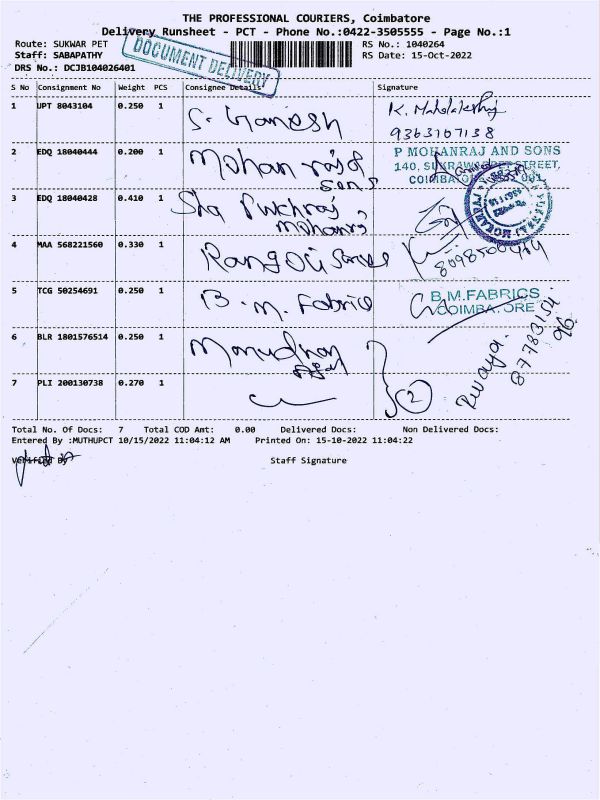 THE PROFESSIONAL COURIERS, Coimbatore
Delivery Runsheet - PCT - Phone No.:0422-3505555 - Page No.:1
Route: SUKWAR PET
RS No.: 1040264
Staff: SABAPATHY
RS Date: 15-Oct-2022
DRS No.: DCJB104026401
DOCUMENT DELIVERY
S No Consignment No Weight PCS Consignee Details Signature
1 UPT 8043104 0.250 1 S. Ganesh K. Mahalakshmi
9363107138
2 EDQ 18040444 0.200 1 Mohan raj & sons
P MOHANRAJ AND SONS
140, SUKRAWARPET STREET,
COIMBATORE 641 001.
3 EDQ 18040428 0.410 1 Sha Pukhraj
Mohanraj
4 MAA 568221560 0.330 1 Rangoli
5 TCG 50254691 0.250 1 B. M. Fabric
B.M.FABRICS
COIMBATORE
6 BLR 1801576514 0.250 1
7 PLI 200130738 0.270 1
2
Total No. Of Docs: 7 Total COD Amt: 0.00 Delivered Docs: Non Delivered Docs:
Entered By :MUTHUPCT 10/15/2022 11:04:12 AM Printed On: 15-10-2022 11:04:22
Verified By
Staff Signature